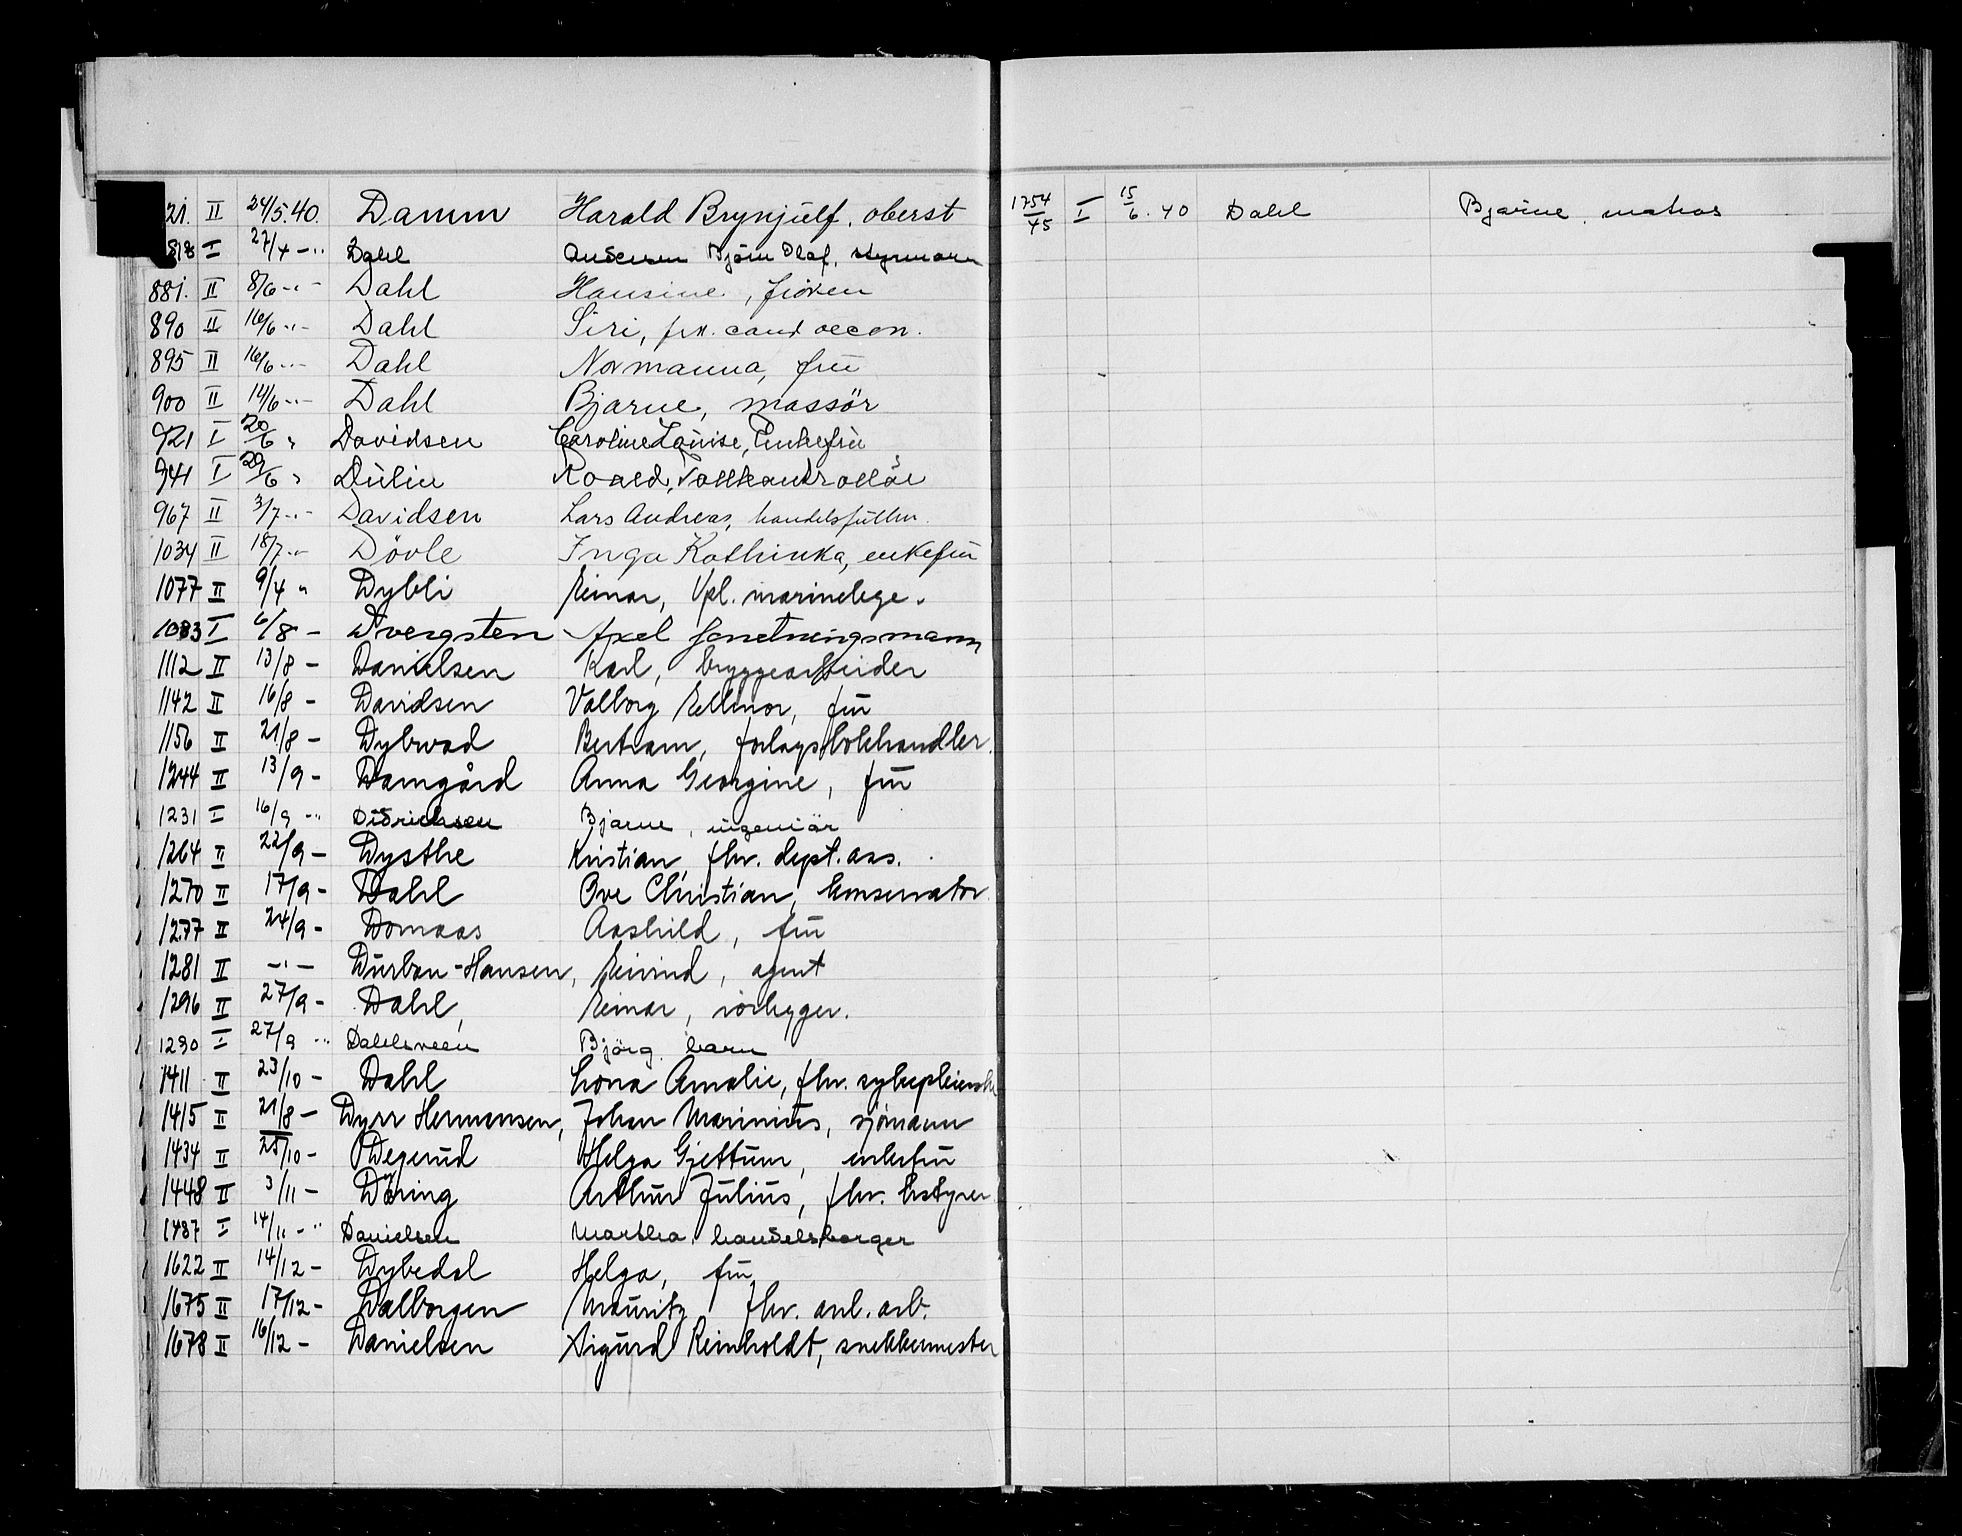 21. II 24/5.40. Damm Harald Brynjulf, oberst
818 I 27/4 -"- Dahl Andersen Björn Olaf, styrmann
881. II 8/6 -"- Dahl Hansine, fröken
890 II 16/6 -"- Dahl Siri, frk. cand oecon.
895 II 16/6 -"- Dahl Normanna, frü
900 II 14/6 -"- Dahl Bjarne, massör
921 I 20/6 " Davidsen Caroline Louise, Enkefrü
941 I 29/6 " Dulin Roald, Tollkontrollör
967 II 3/7 -"- Davidsen Lars Andreas, handelsfullm.
1034 II 18/7 -"- Dövle Inga Kathinka, enkefrü
1077 II 9/4 " Dybli Einar, Vpl. marinelege.
1083 I 6/8 - Dvergsten Axel forretningsmann
1112 II 13/8 - Danielsen Karl, bryggearbeider
1142 II 16/8 - Davidsen Valborg Ellinor, frü
1156 II 21/8 - Dybwad Bertram, forlagsbokhandler.
1244 II 13/9 - Damgård Anna Georgine, frü
1231 I 16/9 -" Didrichsen Bjarne, ingeniör
1264 II 22/9 - Dysthe Kristian, fhv. dept. ass.
1270 II 17/9 - Dahl Ove Christian, konservator
1277 II 24/9 - Domaas Aashild, frü
1281 II -"- Durban-Hansen, Eivind, agent
1296 II 27/9 - Dahl, Einar, rörlegger.
1290 I 27/9 " Dahlsveen Björg, barn
1411 II 23/10 - Dahl Lona Amalie, fhv. sykepleierske
1415 II 21/8 - Dyrr Hermansen, Johan Marinius, sjömann
1434 II 25/10 - Degerud Helga Gjettum, enkefrü
1448 II 3/11 - Döring Arthur Julius, fhv. bestyrer
1487 I 14/11 -" Danielsen Martha, handelsborger
1622 II 14/12 - Dybedal Helga, frü
1675 II 17/12 - Dalborgen Mauritz fhv. anl. arb.
1678 II 16/12 - Danielsen Sigurd Reinholdt, snekkermester
1754/45 I 15/6.40 Dahl Bjarne, matros